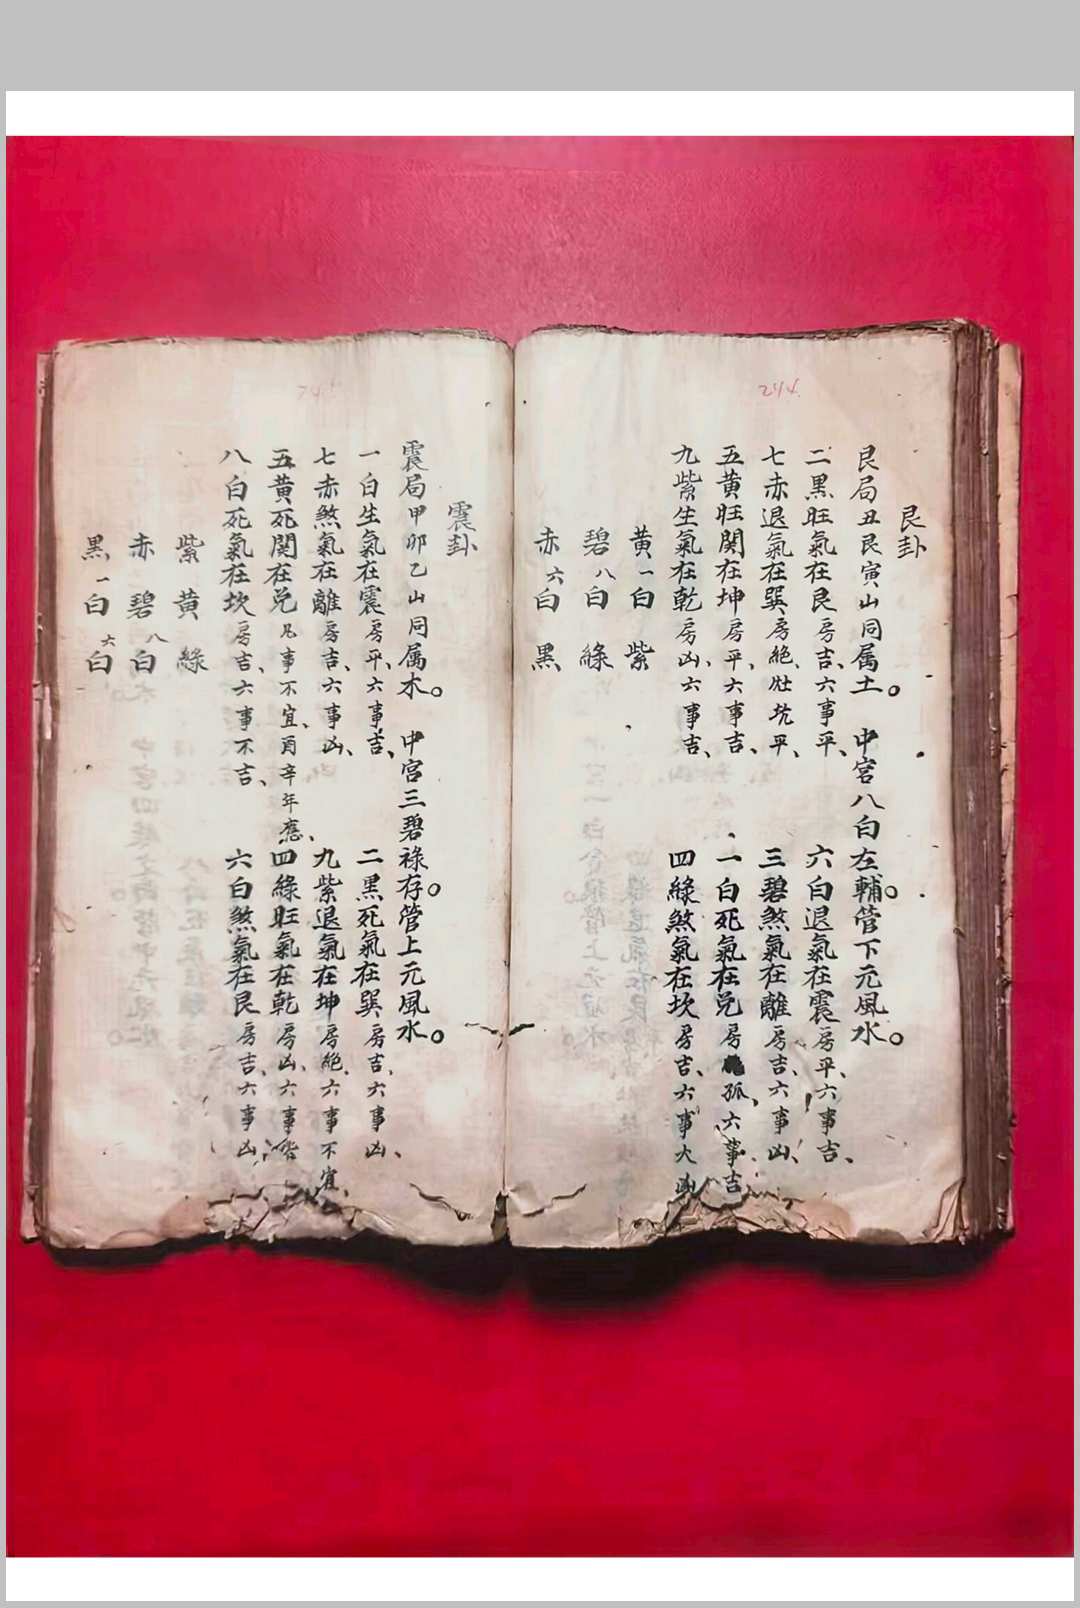 244.
艮卦
艮局丑艮寅山同属土。中宮八白左輔。管下元風水。
二黒旺氣在艮房吉、六事平、六白退氣在震房平、六事吉、
七赤退氣在巽房絶、灶坑平、三碧煞氣在離房吉、六事凶、
五黄旺関在坤房平、六事吉、一白死氣在兌房孤、六事吉
九紫生氣在乾房凶、六事吉、四綠煞氣在坎房吉、六事大凶
黄一白紫
碧八白綠
赤六白黒
74
震卦
震局甲卯乙山同属木。中宮三碧祿存。管上元風水。
一白生氣在震房平、六事吉、二黒死氣在巽房吉、六事凶、
七赤煞氣在離房吉、六事凶、九紫退氣在坤房絶、六事不宜、
五黄死関在兌凡事不宜、酉辛年應、四綠旺氣在乾房凶、六事
八白死氣在坎房吉、六事不吉、六白煞氣在艮房吉、六事凶
紫黄綠
赤碧八白
黒一白六白